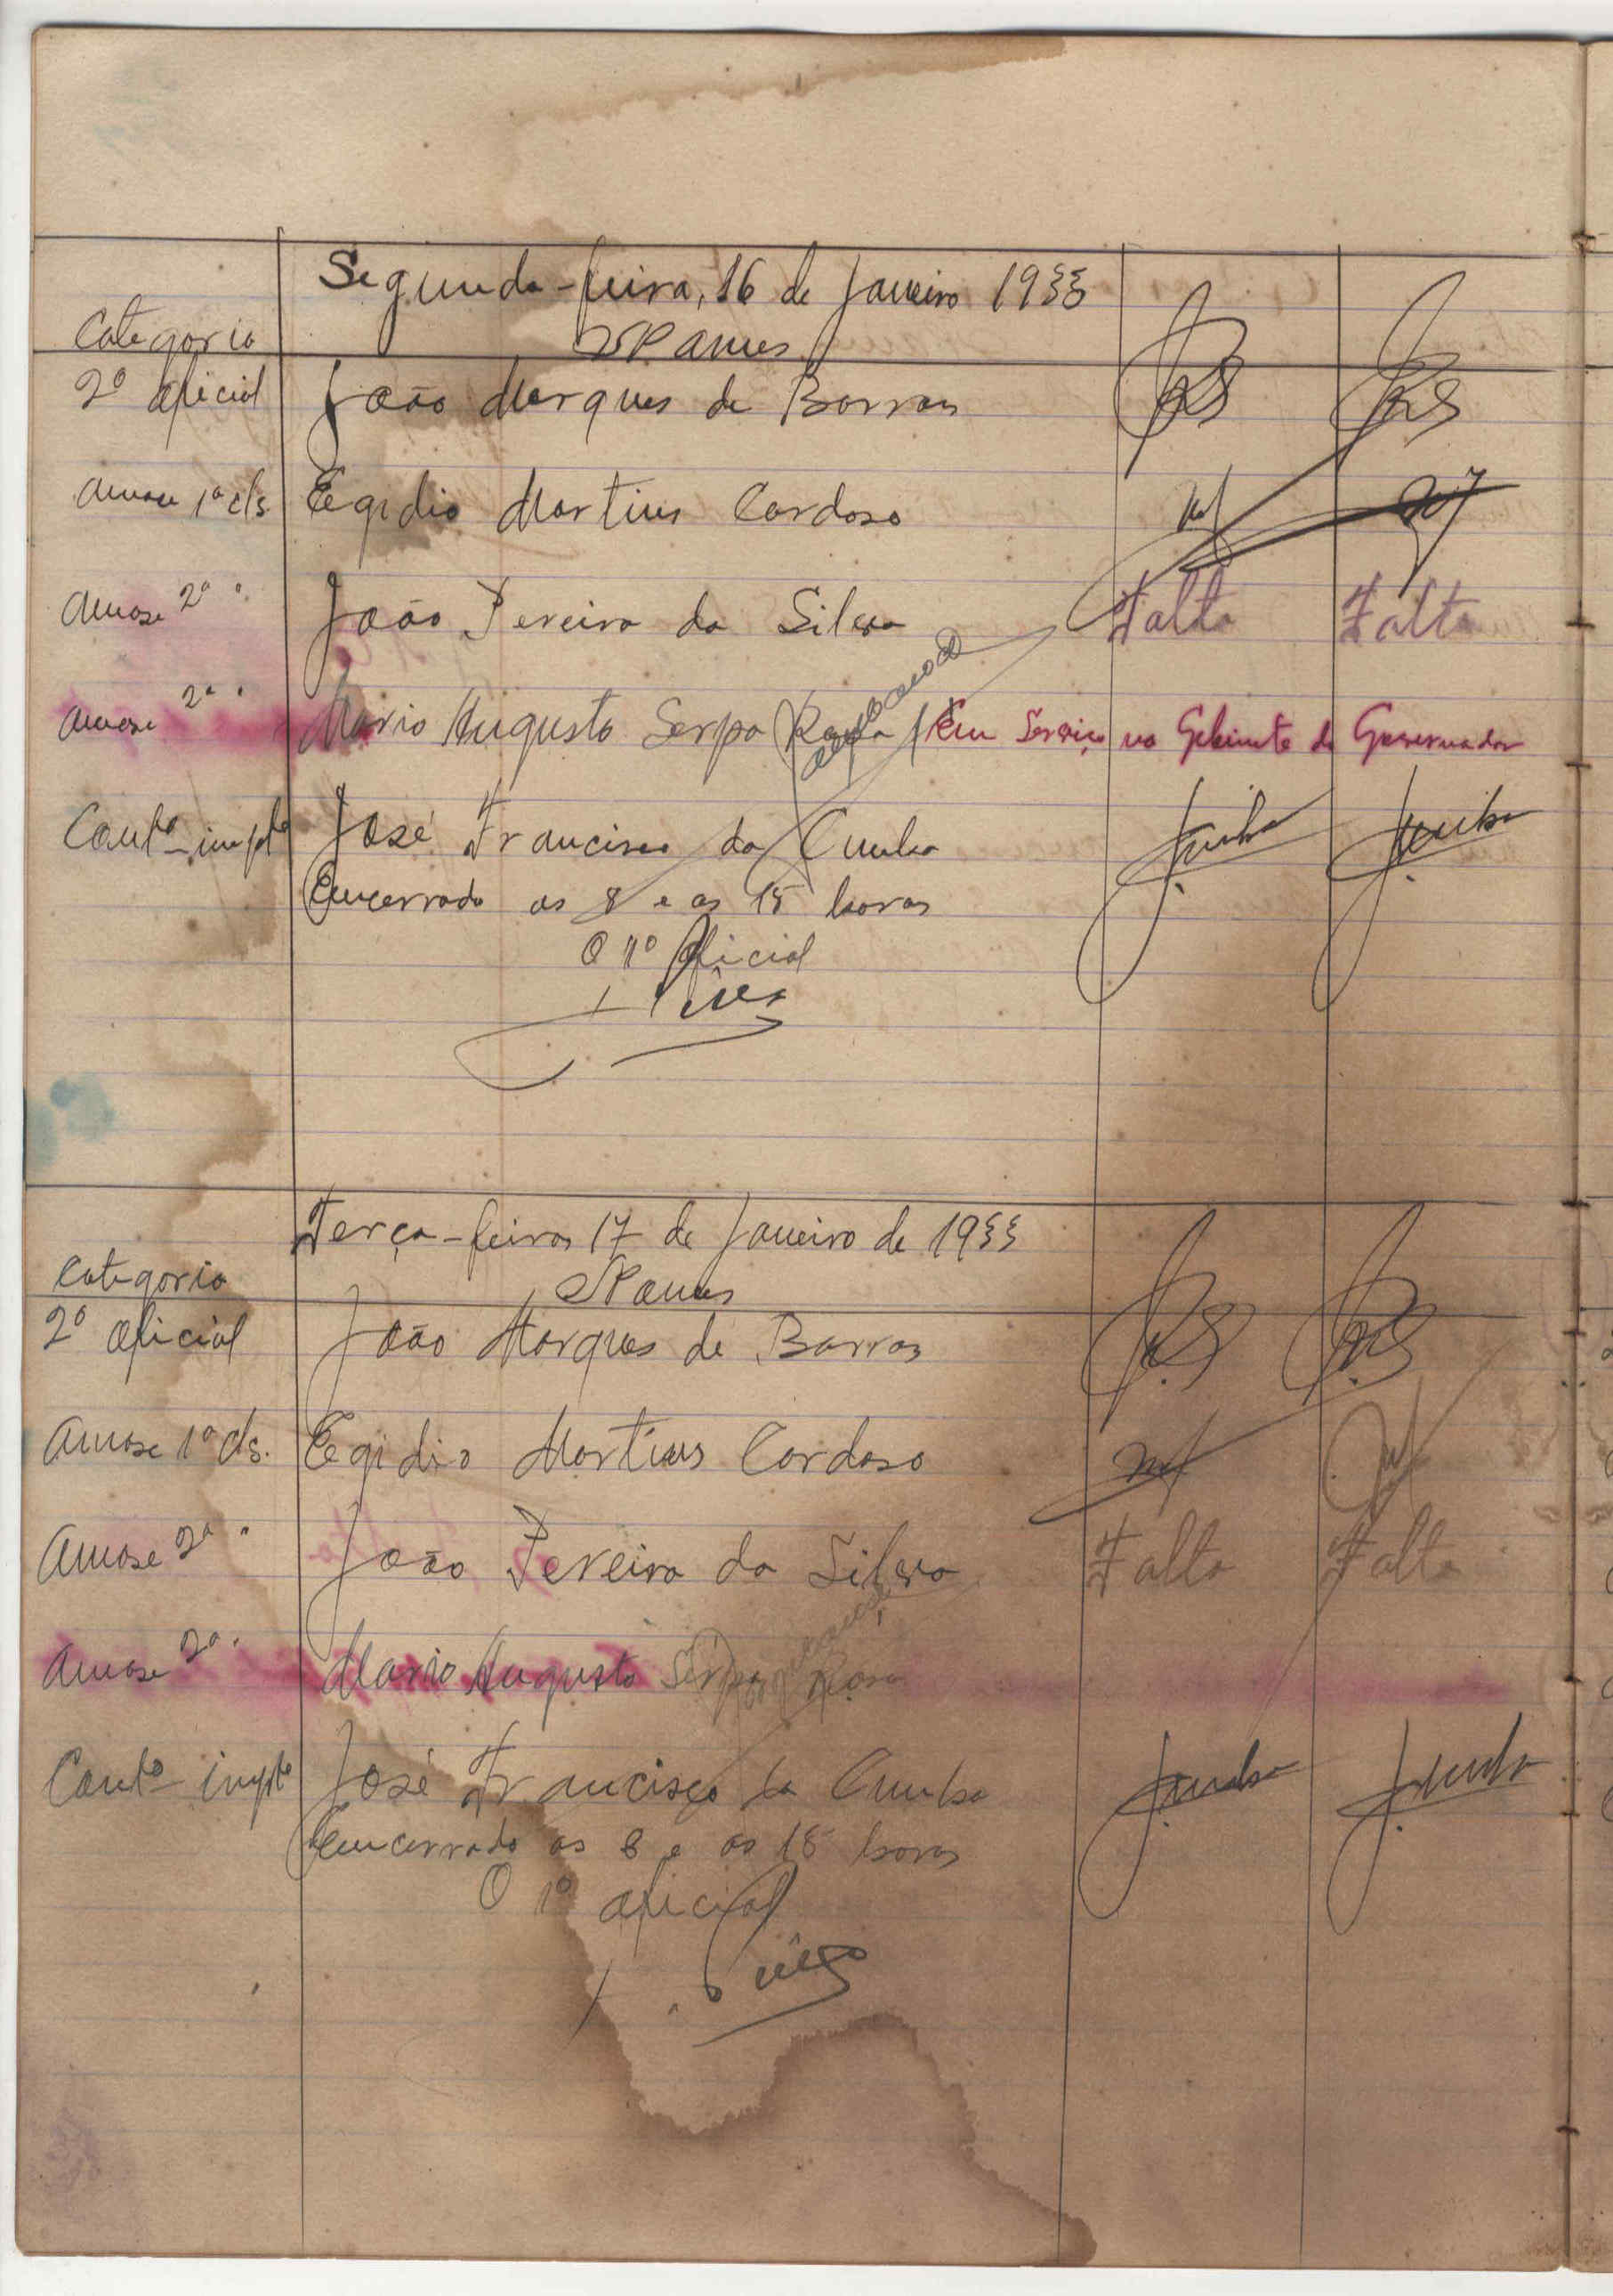 Segunda-feira, 16 de Janeiro 1933
Categoria Nomes
2º Oficial João Marques de Barros
Amase 1ª cls. Egidio Martins Cardoso
Amase 2ª " João Pereira da Silva Falta Falta
Amase 2ª " Mario Augusto Serpa Rosa Em Serviço no Gabinete do Governador
Contº impte José Francisco da Cunha JCunha JCunha
Encerrado as 8 e as 15 horas
O 1º Oficial
Terça-feira 17 de Janeiro de 1933
Categoria Nomes
2º Oficial João Marques de Barros
Amase 1ª cls. Egidio Martins Cardoso
Amase 2ª " João Pereira da Silva Falta Falta
Amase 2ª " Mario Augusto Serpa Rosa
Contº impte José Francisco da Cunha JCunha JCunha
Encerrado as 8 e as 15 horas
O 1º Oficial